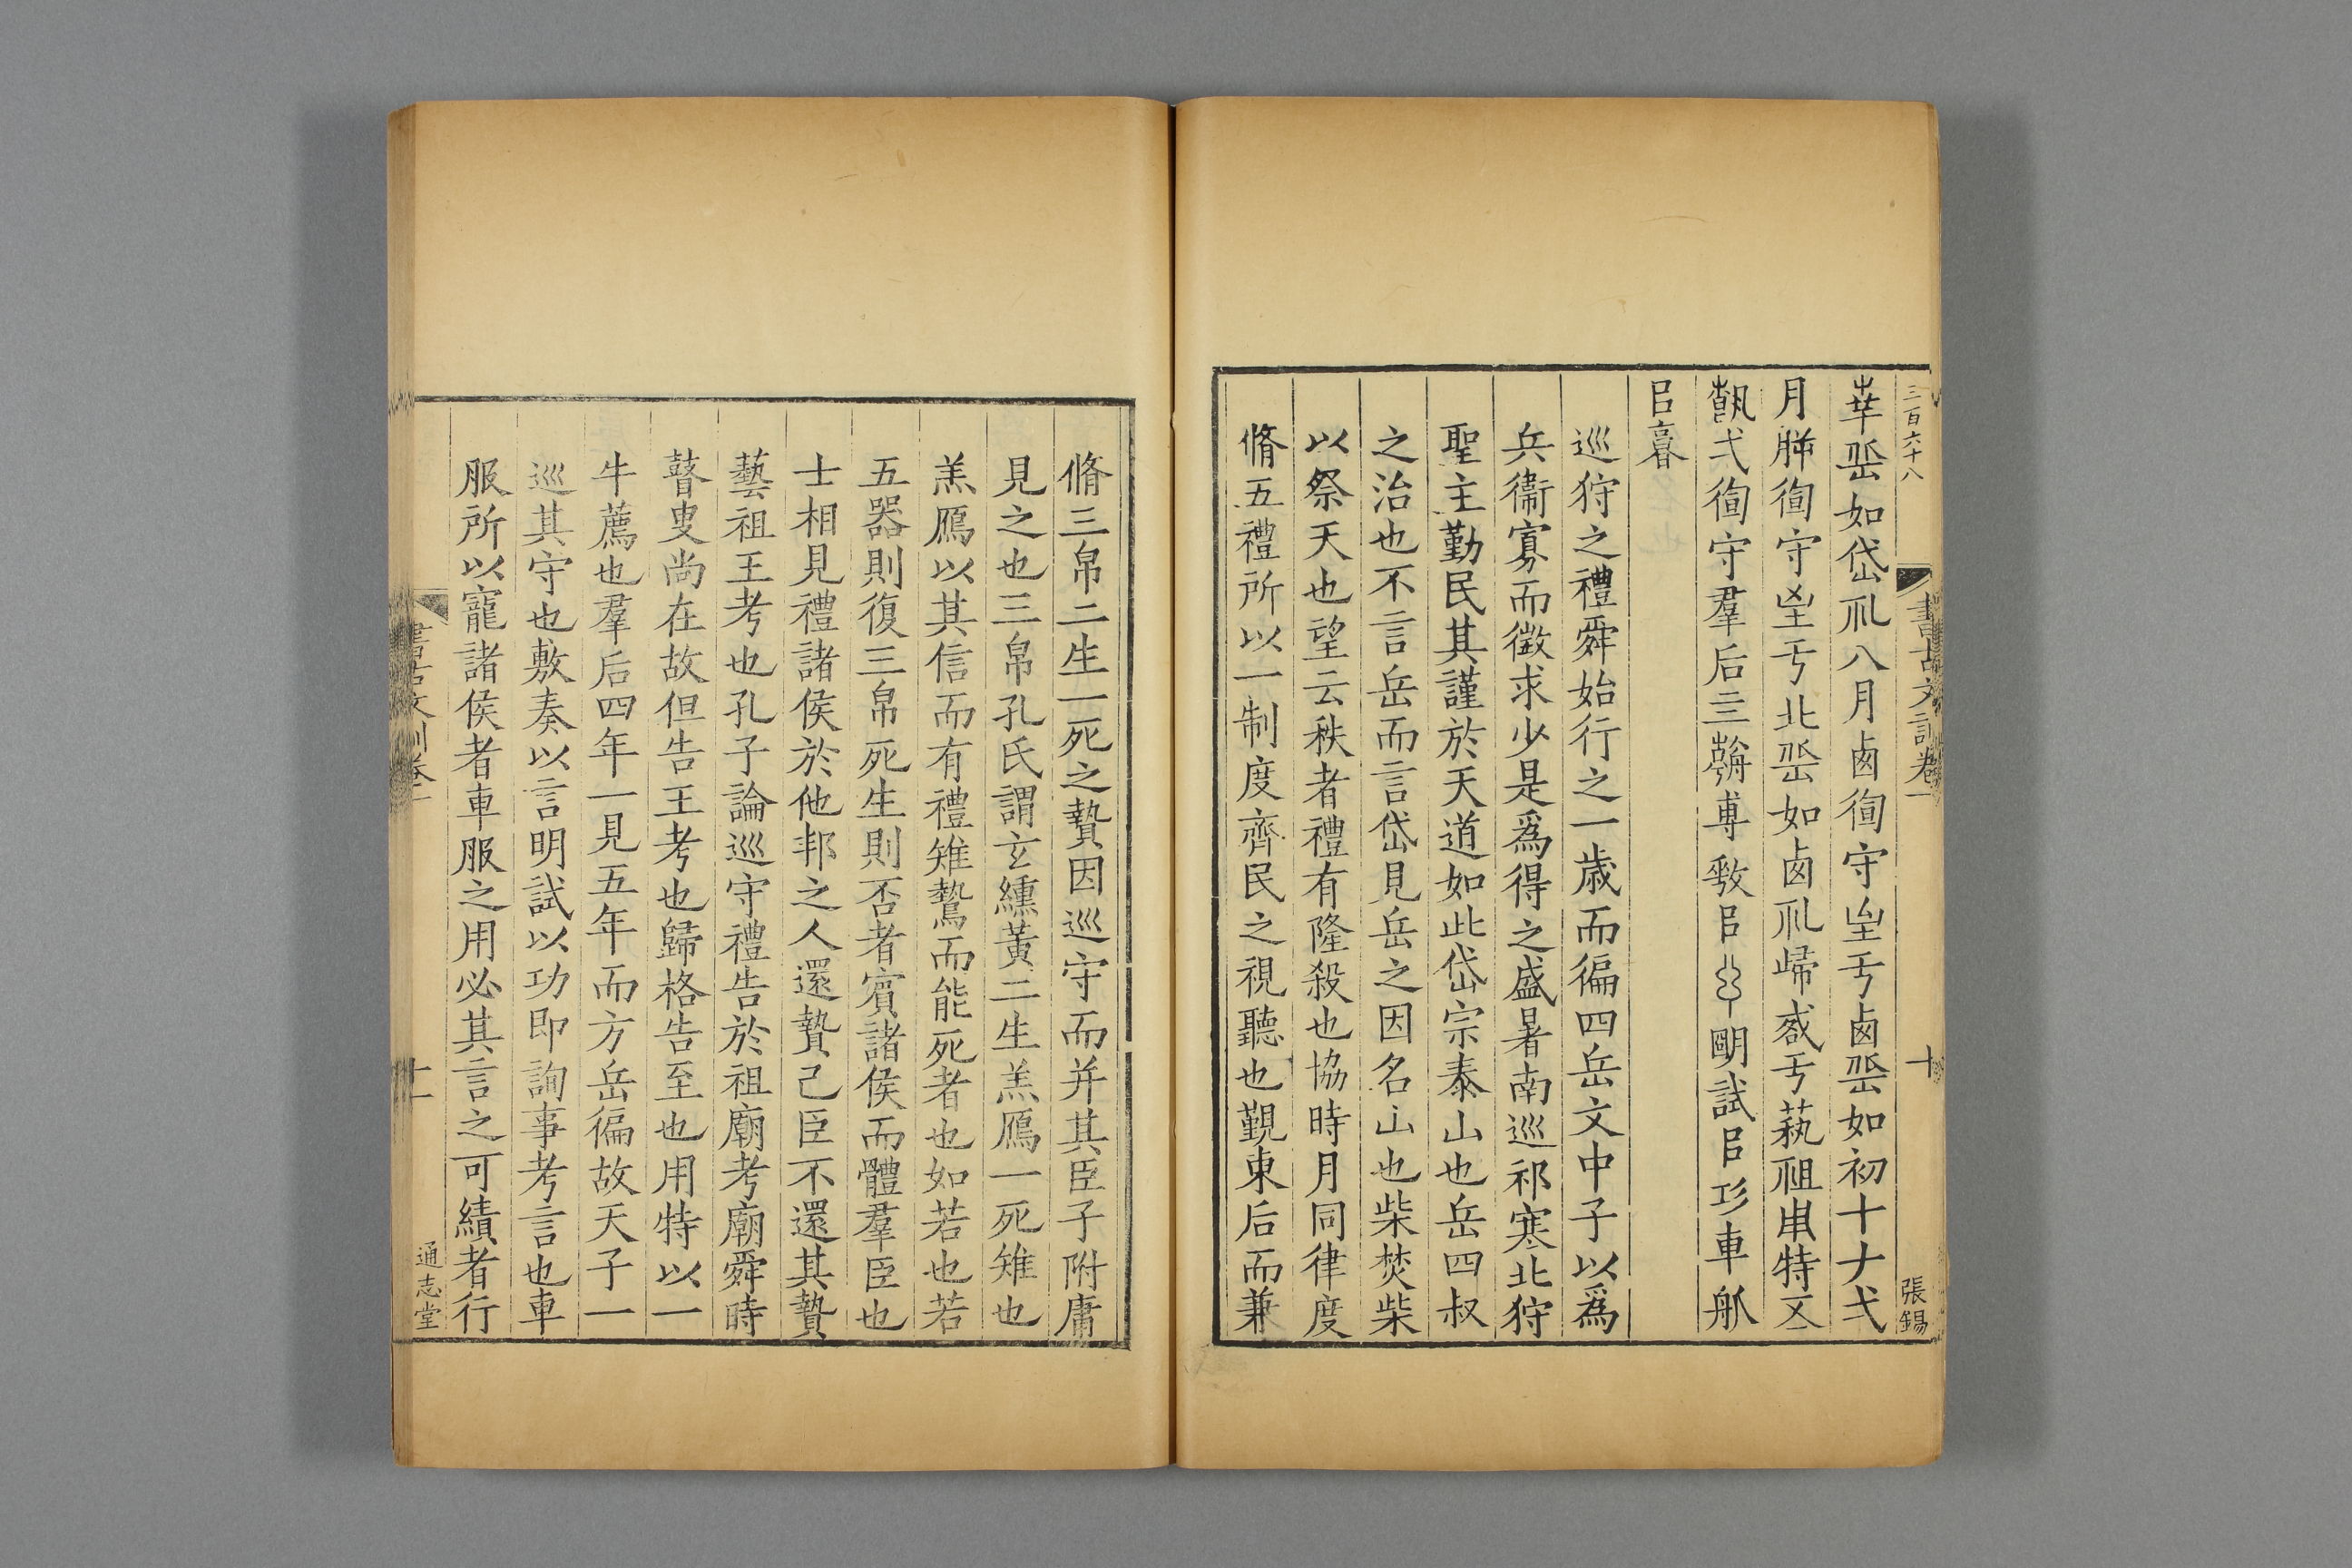 三百六十八
書古文訓卷一
十
張錫
如岱𠃞八月卥徇守㞷亐卥𡶳如初十ナ弌
月徇守㞷亐北𡶳如卥𠃞歸亐蓺祖特
弌徇守羣后亖㠯明試㠯車
㠯
巡狩之禮舜始行之一歳而徧四岳文中子以爲
兵衞寡而徵求少是爲得之盛暑南巡祁寒北狩
聖主勤民其謹於天道如此岱宗泰山也岳四叔
之治也不言岳而言岱見岳之因名山也柴焚柴
以祭天也望云秩者禮有隆殺也協時月同律度
脩五禮所以一制度齊民之視聽也覲東后而兼
脩三帛二生一死之贄因巡守而并其臣子附庸
見之也三帛孔氏謂玄纁黃二生羔鴈一死雉也
羔鴈以其信而有禮雉鷙而能死者也如若也若
五器則復三帛死生則否者賓諸侯而體羣臣也
士相見禮諸侯於他邦之人還贄己臣不還其贄
藝祖王考也孔子論巡守禮告於祖廟考廟舜時
瞽叟尚在故但告王考也歸格告至也用特以一
牛薦也羣后四年一見五年而方岳徧故天子一
巡其守也敷奏以言明試以功即詢事考言也車
服所以寵諸侯者車服之用必其言之可績者行
書古文訓卷一
十一
通志堂